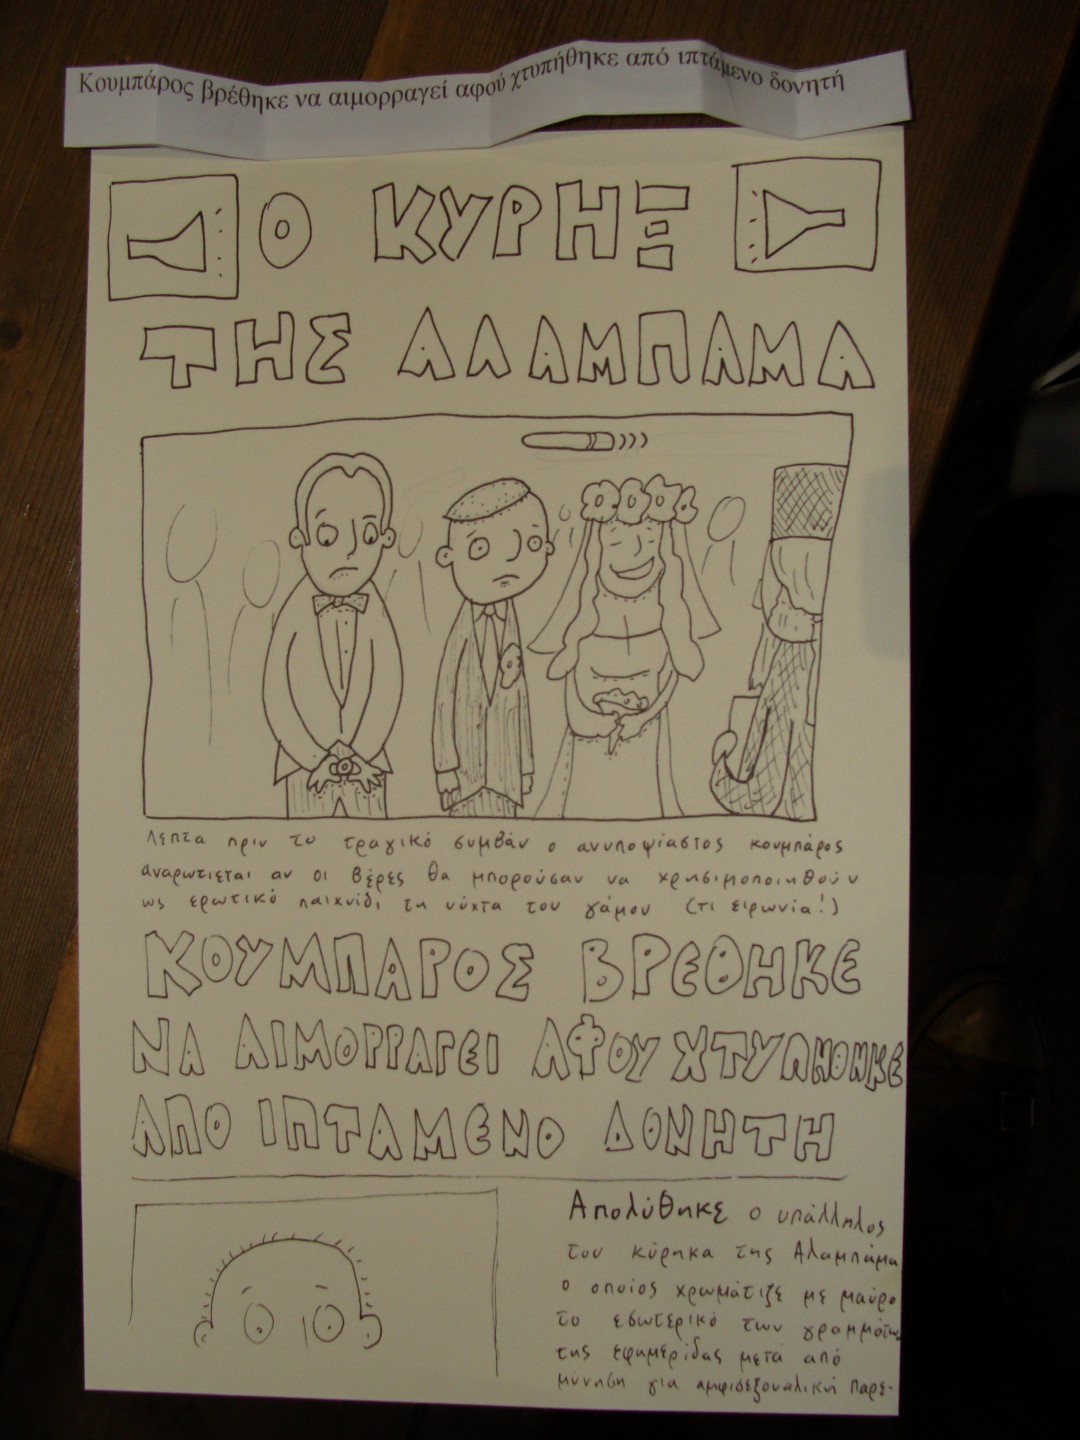 Κουμπάρος βρέθηκε να αιμορραγεί αφού χτυπήθηκε από ιπτάμενο δονητή
Ο ΚΥΡΗΞ
ΤΗΣ ΑΛΑΜΠΑΜΑ
Λεπτα πριν το τραγικό συμβάν ο ανυποψίαστος κουμπάρος
αναρωτιεται αν οι βέρες θα μπορούσαν να χρησιμοποιηθούν
ως ερωτικό παιχνίδι τη νύχτα του γάμου (τι ειρωνία!)
ΚΟΥΜΠΑΡΟΣ ΒΡΕΘΗΚΕ
ΝΑ ΑΙΜΟΡΡΑΓΕΙ ΑΦΟΥ ΧΤΥΠΗΘΗΚΕ
ΑΠΟ ΙΠΤΑΜΕΝΟ ΔΟΝΗΤΗ
Απολύθηκε ο υπάλληλος
του κύρηκα της Αλαμπάμα
ο οποίος χρωμάτιζε με μαύρο
το εσωτερικό των γραμμάτων
της εφημερίδας μετά από
μύνηση για αμφισεξουαλική παρε-